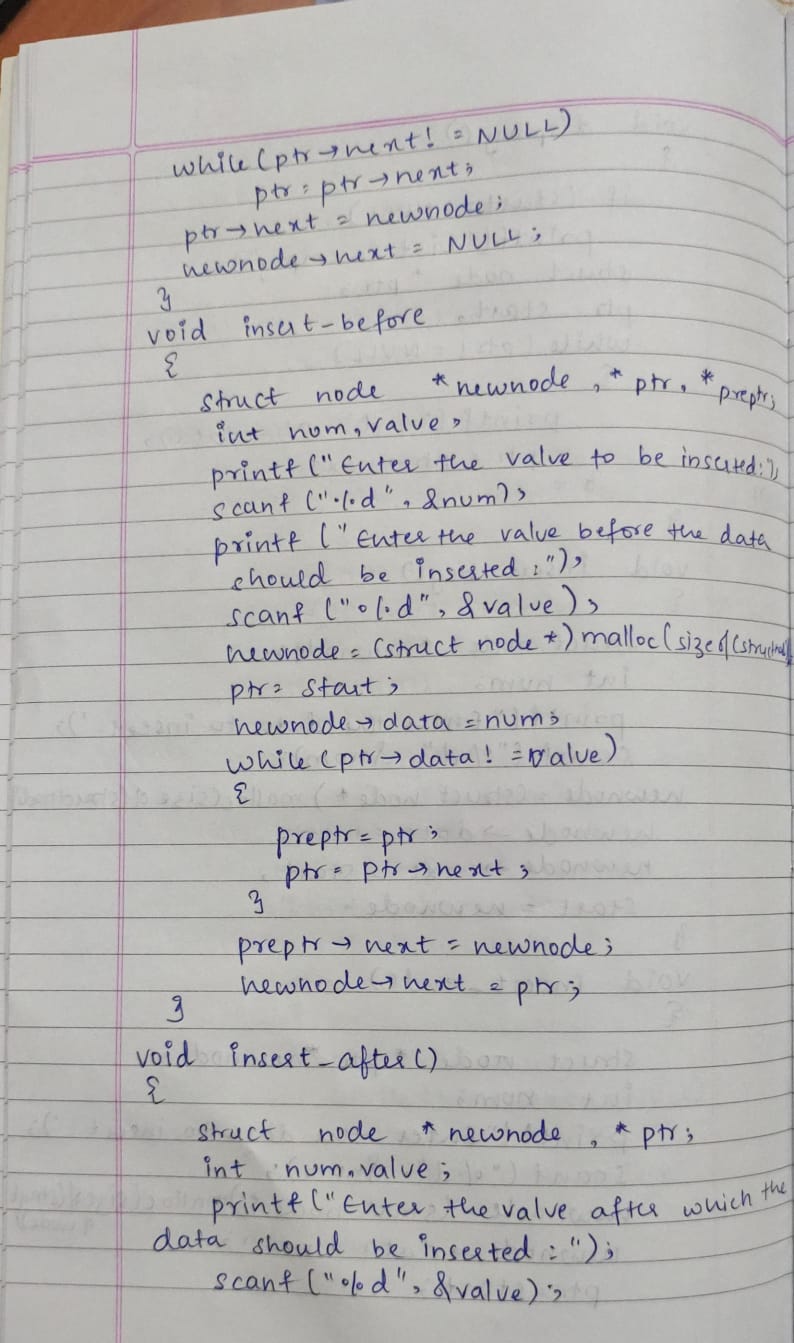 while (ptr→next! = NULL)
ptr = ptr→next;
ptr→next = newnode;
newnode→next = NULL;
}
void insert-before
{
struct node *newnode, * ptr, * preptr;
int num, value,
printf ("Enter the value to be inserted:");
scanf ("%d", &num);
printf ("Enter the value before the data
should be inserted:");
scanf ("%d", &value);
newnode = (struct node *) malloc(sizeof(struct node));
ptr = start;
newnode→data = num;
while (ptr→data! = value)
{
preptr = ptr;
ptr = ptr→next;
}
preptr→next = newnode;
newnode→next = ptr;
}
void insert-after()
{
struct node * newnode, * ptr;
int num, value;
printf ("Enter the value after which the
data should be inserted :");
scanf ("%d", &value);